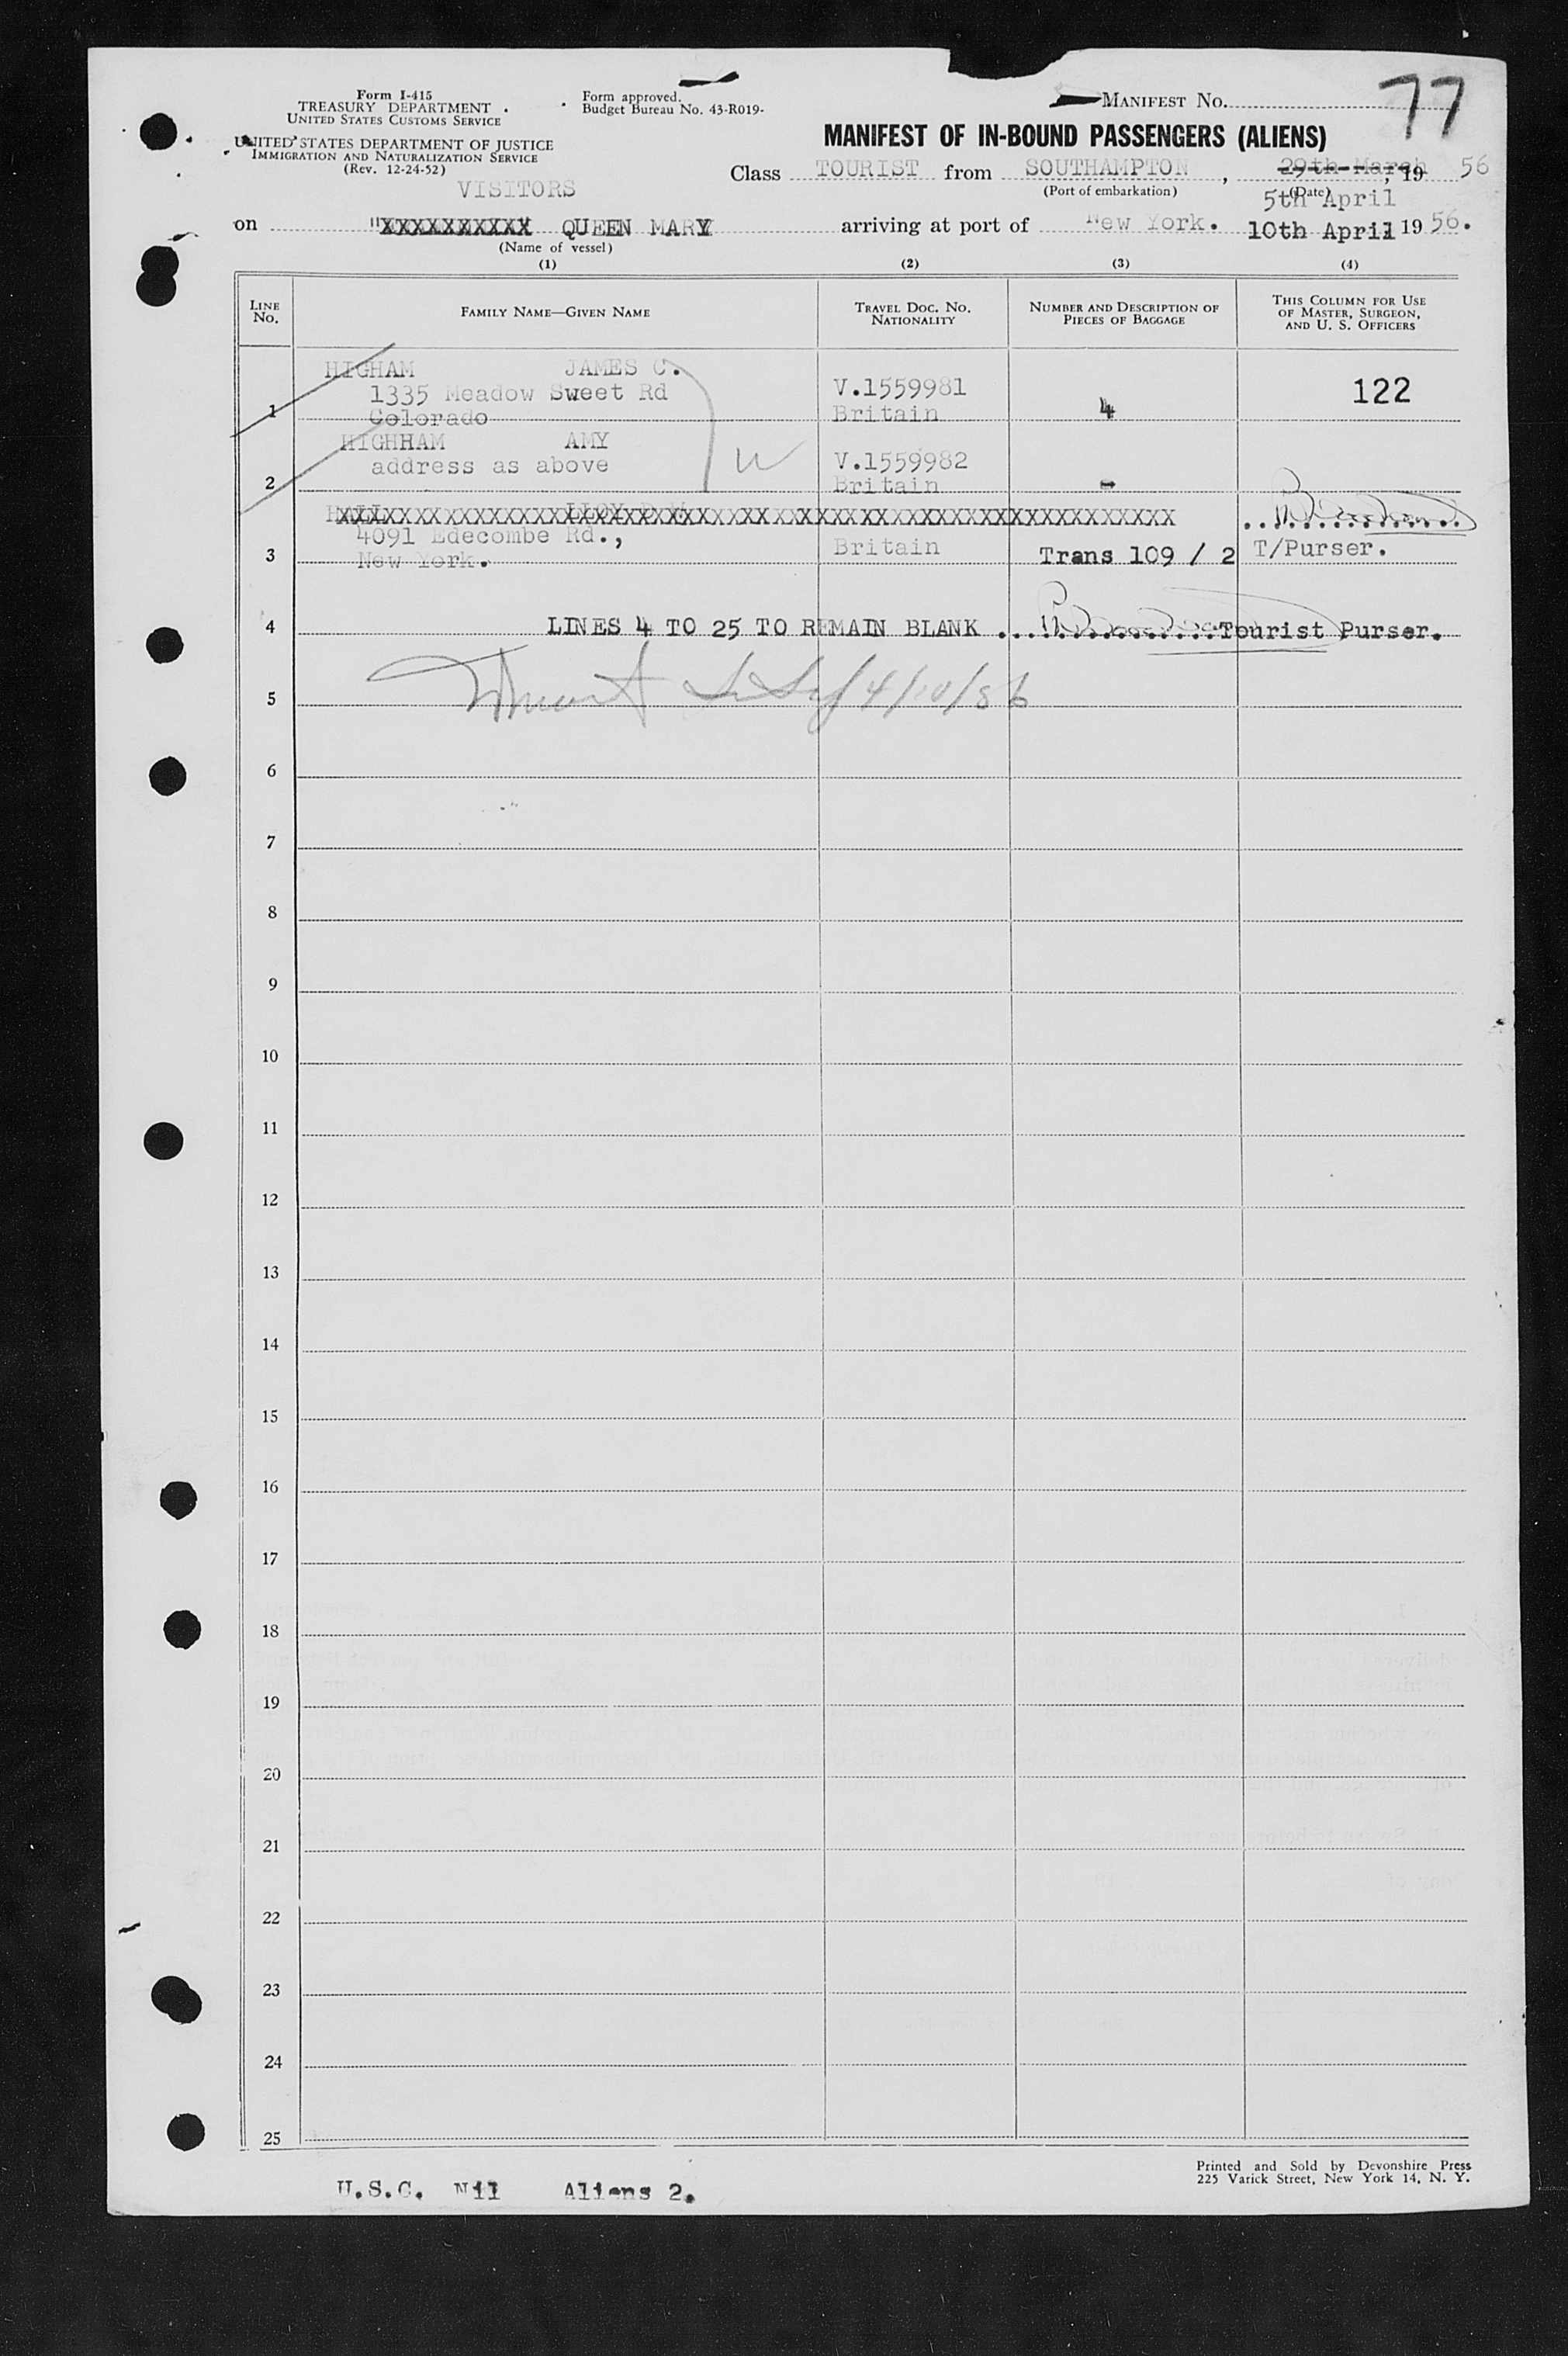 Form I-415
TREASURY DEPARTMENT
UNITED STATES CUSTOMS SERVICE
UNITED STATES DEPARTMENT OF JUSTICE
IMMIGRATION AND NATURALIZATION SERVICE
(Rev. 12-24-52)
VISITORS
Form approved.
Budget Bureau No. 43-R019-
MANIFEST NO. 77
MANIFEST OF IN-BOUND PASSENGERS (ALIENS)
Class TOURIST from SOUTHAMPTON, 29th March, 19 56
(Port of embarkation) (Date)
5th April
on "XXXXXXXXXX QUEEN MARY arriving at port of New York. 10th April 19 56.
(Name of vessel)
(1) (2) (3) (4)
LINE NO. FAMILY NAME—GIVEN NAME TRAVEL DOC. NO. NATIONALITY NUMBER AND DESCRIPTION OF PIECES OF BAGGAGE THIS COLUMN FOR USE OF MASTER, SURGEON, AND U. S. OFFICERS
HIGHAM JAMES C.
1335 Meadow Sweet Rd V.1559981 122
1 Colorado Britain 4
HIGHHAM AMY
address as above W V.1559982
2 Britain -
HALL LLOY
4091 Edecombe Rd.,
3 New York. Britain Trans 109 / 2 T/Purser.
4 LINES 4 TO 25 TO REMAIN BLANK ................Tourist Purser.
5 4/10/56
6
7
8
9
10
11
12
13
14
15
16
17
18
19
20
21
22
23
24
25
Printed and Sold by Devonshire Press
225 Varick Street, New York 14, N. Y.
U.S.C. Nil Aliens 2.